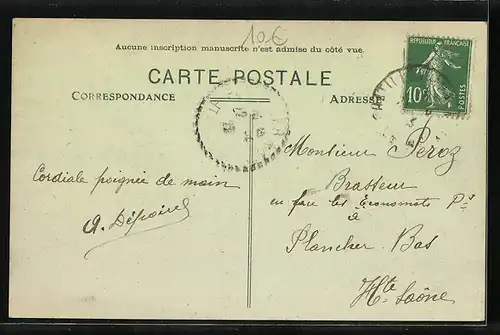 10€
Aucune inscription manuscrite n'est admise du côté vue.
CARTE POSTALE
CORRESPONDANCE
ADRESSE
RÉPUBLIQUE FRANÇAISE
10c
POSTES
Monsieur Peroz
Brasseur
Cordiale poignée de main
en face les Économats
à
Plancher-Bas
Hte Saône